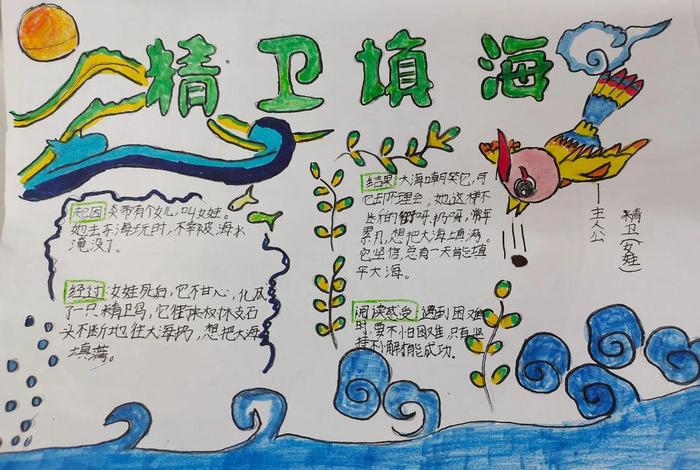 精卫填海
起因:炎帝有个女儿,叫女娃。
她去东海玩时,不幸被海水
淹没了。
经过:女娃死后,它不甘心,化成
了一只精卫鸟,它往
头不断地往大海扔,想把大海
填满。
结果:大海嘲笑它,可
它却不理会,她这样不
断的衔呀,扔呀,常年
累月,想把大海填满。
它坚信,总有一天能填
平大海。
阅读感受:遇到困难
时,要不怕困难,只有坚
持不懈才能成功。
精卫(女娃)
主人公